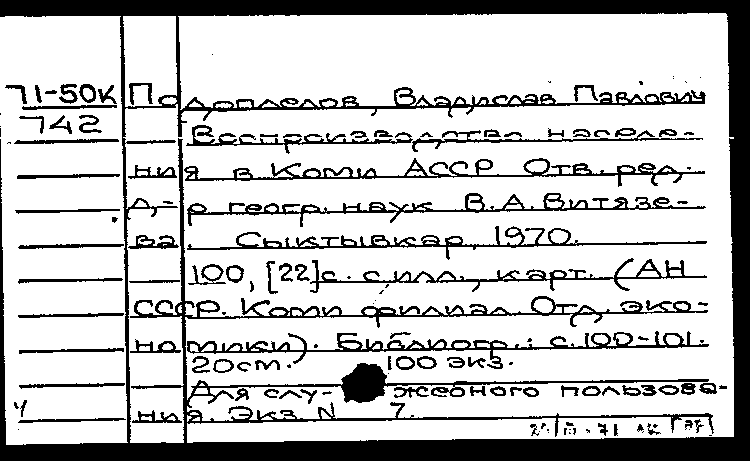 71-50к Подоплелов, Владислав Павлович
742 Воспроизводство населе-
ния в Коми АССР. Отв. ред.
д-р геогр. наук В.А. Витязе-
ва. Сыктывкар, 1970.
100, [22]с. с илл., карт. (АН
СССР. Коми филиал. Отд. эко-
номики). Библиогр.: с. 100-101.
20см. 100 экз.
Для слу- жебного пользова-
ния. Экз. N 7.